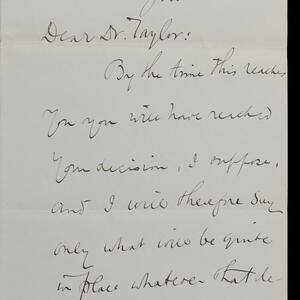 Dear Dr. Taylor:
By the time this reaches
you you will have reached
your decision, I suppose,
and I will therefore say
only what will be quite
in place whatever that de